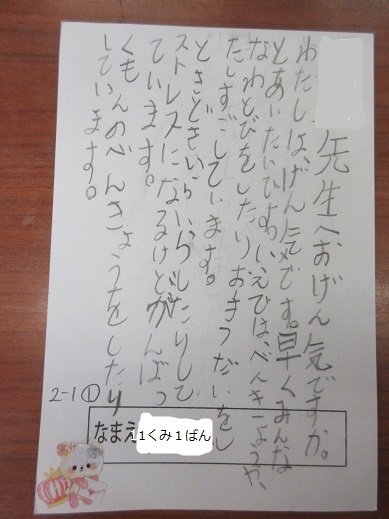 先生へおげん気ですか。
わたしは、げん気です。早くみんな
とあいたいです。いえでは、べんきょうや、
なわとびをしたりおてつだいをし
たしすごしています。
ときどきいらいらしたりして
ストレスになるけどがんばっ
ています。
くもんのべんきょうをしたり
しています。
2-1①
なまえ 1くみ1ばん